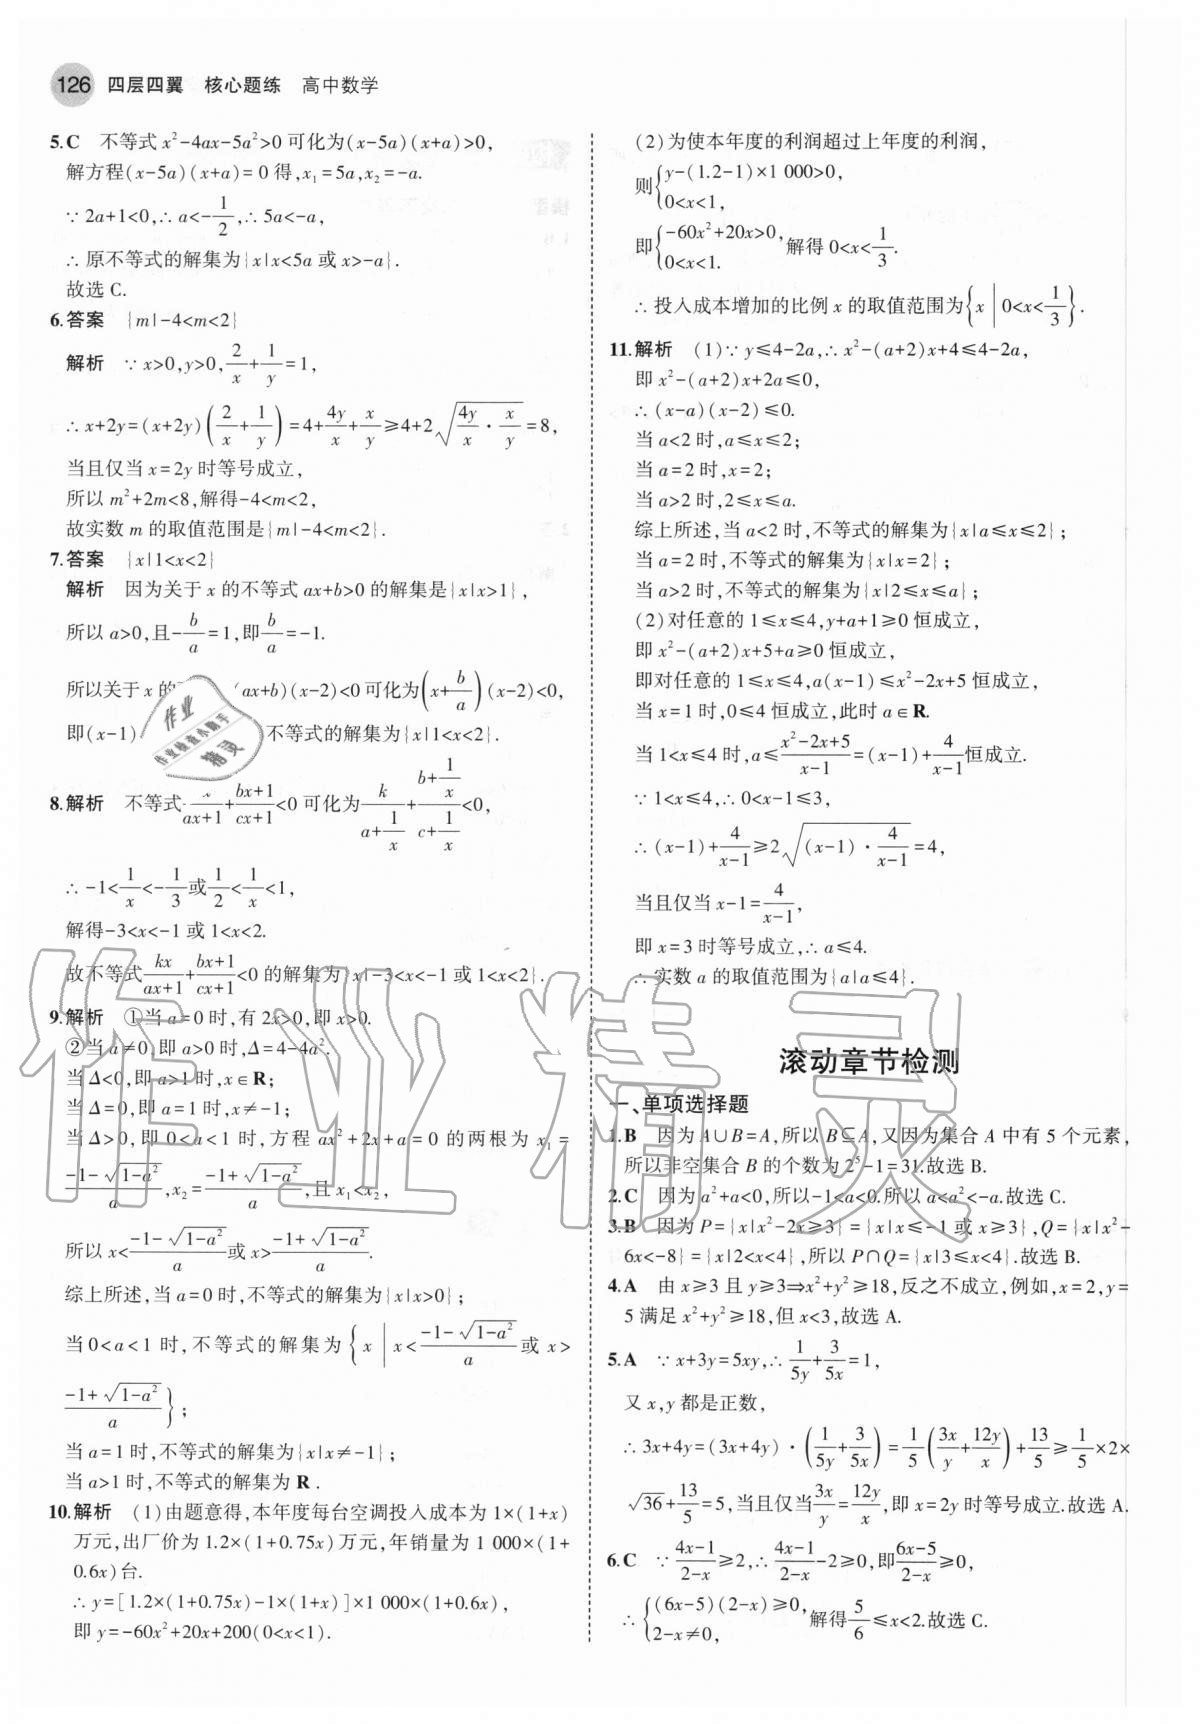 126 四层四翼 核心题练 高中数学
5.C 不等式 x²-4ax-5a²>0 可化为(x-5a)(x+a)>0,
解方程(x-5a)(x+a)=0 得,x₁=5a,x₂=-a.
∵ 2a+1<0,∴ a<-1/2,∴ 5a<-a,
∴ 原不等式的解集为{x|x<5a 或 x>-a}.
故选 C.
6.答案 {m|-4<m<2}
解析 ∵ x>0,y>0,2/x+1/y=1,
∴ x+2y=(x+2y)(2/x+1/y)=4+4y/x+x/y≥4+2√(4y/x·x/y)=8,
当且仅当 x=2y 时等号成立,
所以 m²+2m<8,解得-4<m<2,
故实数 m 的取值范围是{m|-4<m<2}.
7.答案 {x|1<x<2}
解析 因为关于 x 的不等式 ax+b>0 的解集是{x|x>1},
所以 a>0,且-b/a=1,即b/a=-1.
所以关于 x 的 (ax+b)(x-2)<0 可化为(x+b/a)(x-2)<0,
即(x-1) 不等式的解集为{x|1<x<2}.
8.解析 不等式 /(ax+1)+(bx+1)/(cx+1)<0 可化为k/(a+1/x)+(b+1/x)/(c+1/x)<0,
∴ -1<1/x<-1/3或1/2<1/x<1,
解得-3<x<-1 或 1<x<2.
故不等式kx/(ax+1)+(bx+1)/(cx+1)<0 的解集为{x|-3<x<-1 或 1<x<2}.
9.解析 ①当 a=0 时,有 2x>0,即 x>0.
②当 a≠0,即 a>0 时,Δ=4-4a².
当 Δ<0,即 a>1 时,x∈R;
当 Δ=0,即 a=1 时,x≠-1;
当 Δ>0,即 0<a<1 时,方程 ax²+2x+a=0 的两根为 x₁=
(-1-√(1-a²))/a,x₂=(-1+√(1-a²))/a,且 x₁<x₂,
所以 x<(-1-√(1-a²))/a或 x>(-1+√(1-a²))/a.
综上所述,当 a=0 时,不等式的解集为{x|x>0};
当 0<a<1 时,不等式的解集为{x|x<(-1-√(1-a²))/a或 x>
(-1+√(1-a²))/a};
当 a=1 时,不等式的解集为{x|x≠-1};
当 a>1 时,不等式的解集为 R.
10.解析 (1)由题意得,本年度每台空调投入成本为 1×(1+x)
万元,出厂价为 1.2×(1+0.75x)万元,年销量为 1 000×(1+
0.6x)台.
∴ y=[1.2×(1+0.75x)-1×(1+x)]×1 000×(1+0.6x),
即 y=-60x²+20x+200(0<x<1).
(2)为使本年度的利润超过上年度的利润,
则{y-(1.2-1)×1 000>0, 0<x<1,
即{-60x²+20x>0, 0<x<1. 解得 0<x<1/3.
∴ 投入成本增加的比例 x 的取值范围为{x|0<x<1/3}.
11.解析 (1)∵ y≤4-2a,∴ x²-(a+2)x+4≤4-2a,
即 x²-(a+2)x+2a≤0,
∴ (x-a)(x-2)≤0.
当 a<2 时,a≤x≤2;
当 a=2 时,x=2;
当 a>2 时,2≤x≤a.
综上所述,当 a<2 时,不等式的解集为{x|a≤x≤2};
当 a=2 时,不等式的解集为{x|x=2};
当 a>2 时,不等式的解集为{x|2≤x≤a};
(2)对任意的 1≤x≤4,y+a+1≥0 恒成立,
即 x²-(a+2)x+5+a≥0 恒成立,
即对任意的 1≤x≤4,a(x-1)≤x²-2x+5 恒成立,
当 x=1 时,0≤4 恒成立,此时 a∈R.
当 1<x≤4 时,a≤(x²-2x+5)/(x-1)=(x-1)+4/(x-1)恒成立.
∵ 1<x≤4,∴ 0<x-1≤3,
∴ (x-1)+4/(x-1)≥2√((x-1)·4/(x-1))=4,
当且仅当 x-1=4/(x-1),
即 x=3 时等号成立,∴ a≤4.
∴ 实数 a 的取值范围为{a|a≤4}.
滚动章节检测
一、单项选择题
1.B 因为 A∪B=A,所以 B⊆A,又因为集合 A 中有 5 个元素,
所以非空集合 B 的个数为 2⁵-1=31.故选 B.
2.C 因为 a²+a<0,所以-1<a<0.所以 a<a²<-a.故选 C.
3.B 因为 P={x|x²-2x≥3}={x|x≤-1 或 x≥3},Q={x|x²-
6x<-8}={x|2<x<4},所以 P∩Q={x|3≤x<4}.故选 B.
4.A 由 x≥3 且 y≥3⇒x²+y²≥18,反之不成立,例如,x=2,y=
5 满足 x²+y²≥18,但 x<3,故选 A.
5.A ∵ x+3y=5xy,∴ 1/5y+3/5x=1,
又 x,y 都是正数,
∴ 3x+4y=(3x+4y)·(1/5y+3/5x)=1/5(3x/y+12y/x)+13/5≥1/5×2×
√36+13/5=5,当且仅当3x/y=12y/x,即 x=2y 时等号成立.故选 A.
6.C ∵ (4x-1)/(2-x)≥2,∴ (4x-1)/(2-x)-2≥0,即(6x-5)/(2-x)≥0,
∴ {(6x-5)(2-x)≥0, 2-x≠0, 解得5/6≤x<2.故选 C.
作业
作业检查小助手
精灵
作业精灵